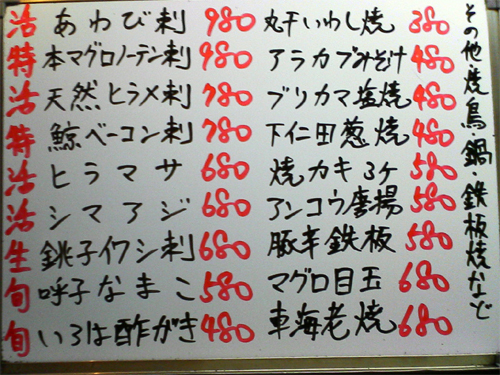 その他焼鳥・鍋・鉄板焼など
活 あわび刺 980
特 本マグロノーテン刺 980
活 天然ヒラメ刺 780
特 鯨ベーコン刺 780
活 ヒラマサ 680
活 シマアジ 680
生 銚子イワシ刺 680
旬 呼子なまこ 580
旬 いろは酢がき 480
丸干いわし焼 380
アラカブみそ汁 480
ブリカマ塩焼 480
下仁田葱焼 480
焼カキ3ケ 580
アンコウ唐揚 580
豚辛鉄板 580
マグロ目玉 680
車海老焼 680